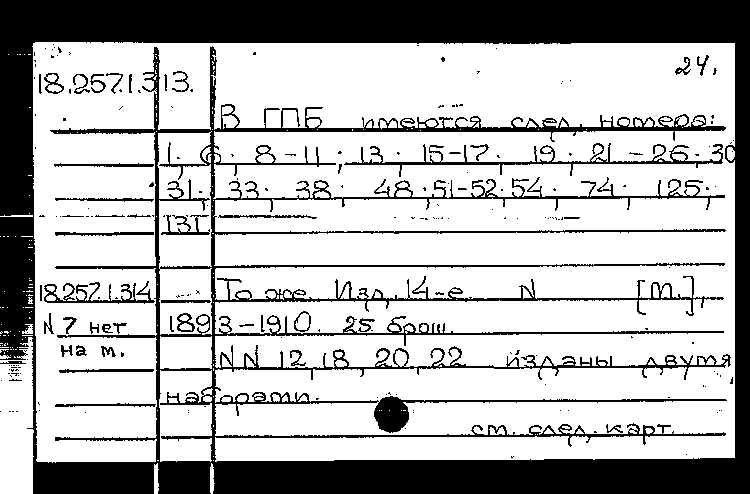 24.
18.257.1.313.
В ГПБ имеются след. номера:
1, 6; 8-11; 13; 15-17; 19; 21-26; 30
31; 33; 38; 48; 51-52, 54; 74; 125;
131
18.257.1.314 — То же. Изд. 14-е N [т.],
N 7 нет 1893-1910. 25 брош.
на т. NN 12, 18, 20, 22 изданы двумя
наборами.
см. след. карт.